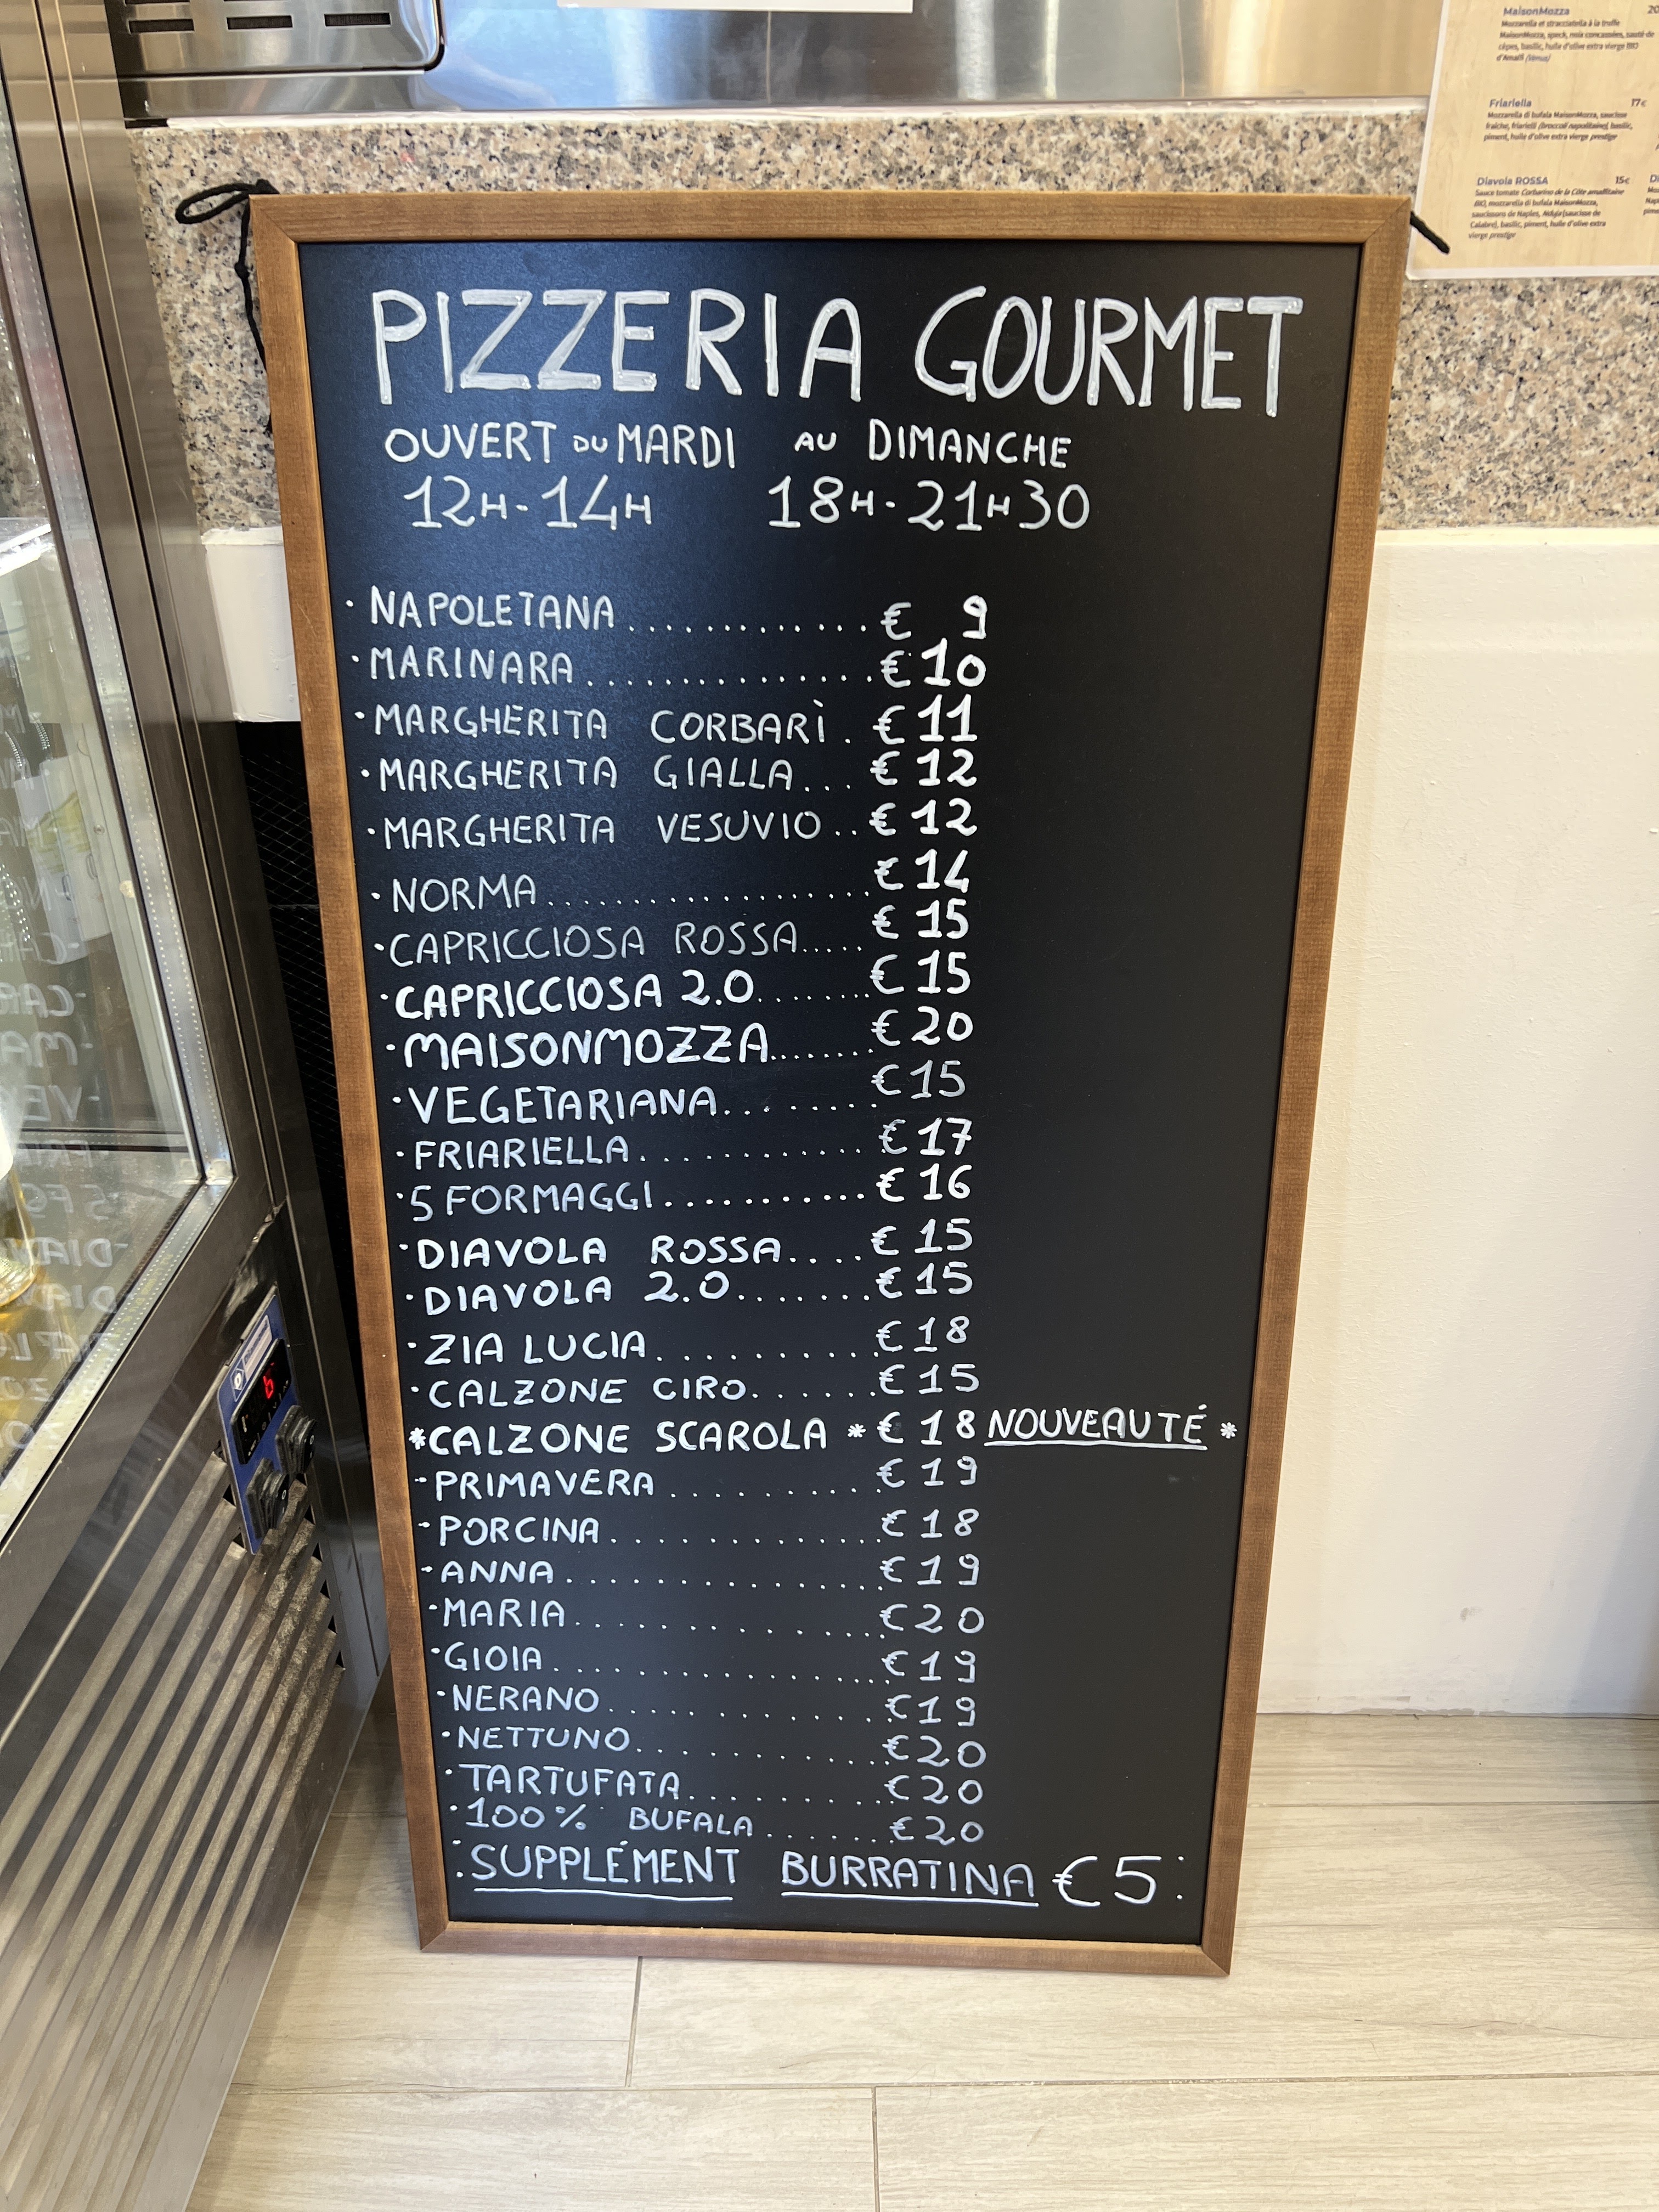 PIZZERIA GOURMET
OUVERT DU MARDI AU DIMANCHE
12H-14H 18H-21H30
· NAPOLETANA ............. € 9
· MARINARA ............... € 10
· MARGHERITA CORBARÌ . € 11
· MARGHERITA GIALLA... € 12
· MARGHERITA VESUVIO .. € 12
· NORMA .................. € 14
· CAPRICCIOSA ROSSA..... € 15
· CAPRICCIOSA 2.0........ € 15
· MAISONMOZZA........ € 20
· VEGETARIANA......... € 15
· FRIARIELLA............. € 17
· 5 FORMAGGI............ € 16
· DIAVOLA ROSSA.... € 15
· DIAVOLA 2.0....... € 15
· ZIA LUCIA.......... € 18
· CALZONE CIRO....... € 15
*CALZONE SCAROLA * € 18 NOUVEAUTÉ *
- PRIMAVERA ......... € 19
- PORCINA............ € 18
- ANNA............... € 19
· MARIA............... € 20
· GIOIA............... € 19
· NERANO............. € 19
· NETTUNO............ € 20
· TARTUFATA.......... € 20
· 100% BUFALA ....... € 20
: SUPPLÉMENT BURRATINA € 5 :
MaisonMozza 20
Mozzarella et stracciatella à la truffe
MaisonMozza, speck, noix concassées, sauté de
cèpes, basilic, huile d'olive extra vierge BIO
d'Amalfi (Venus)
Friariella 17€
Mozzarella di bufala MaisonMozza, saucisse
fraîche, friarielli (broccoli napolitains), basilic,
piment, huile d'olive extra vierge prestige
Diavola ROSSA 15€
Sauce tomate Corbarino de la Côte amalfitaine
BIO, mozzarella di bufala MaisonMozza,
saucissons de Naples, Nduja (saucisse de
Calabre), basilic, piment, huile d'olive extra
vierge prestige